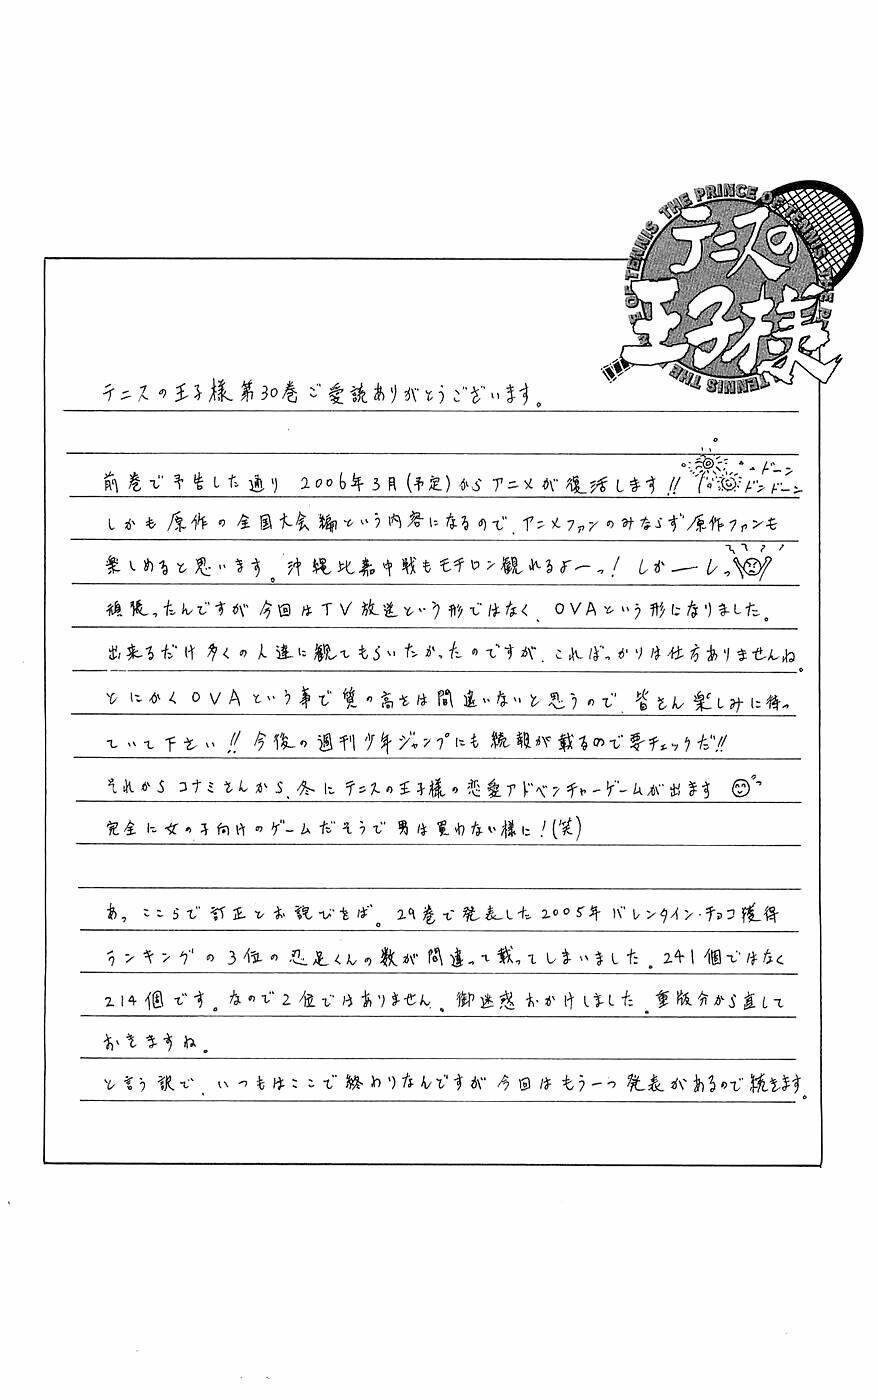 THE PRINCE OF TENNIS THE PRINCE OF TENNIS THE
テニスの
王子様
テニスの王子様第30巻ご愛読ありがとうございます。
前巻で予告した通り 2006年3月(予定)からアニメが復活します!! ドーン
ドンドーン
しかも原作の全国大会編という内容になるので、アニメファンのみならず原作ファンも
楽しめると思います。沖縄比嘉中戦もモチロン観れるよーっ! しかーしっ
頑張ったんですが今回はTV放送という形ではなく、OVAという形になりました。
出来るだけ多くの人達に観てもらいたかったのですが、こればっかりは仕方ありませんね。
とにかくOVAという事で質の高さは間違いないと思うので、皆さん楽しみに待っ
ていて下さい!! 今後の週刊少年ジャンプにも続報が載るので要チェックだ!!
それからコナミさんから、冬にテニスの王子様の恋愛アドベンチャーゲームが出ます
完全に女の子向けのゲームだそうで男は買わない様に!(笑)
あっここらで訂正とお詫びをば。29巻で発表した2005年バレンタイン・チョコ獲得
ランキングの3位の忍足くんの数が間違って載ってしまいました。241個ではなく
214個です。なので2位ではありません。御迷惑おかけしました。重版分から直して
おきますね。
と言う訳で、いつもはここで終わりなんですが今回はもう一つ発表があるので続きます。